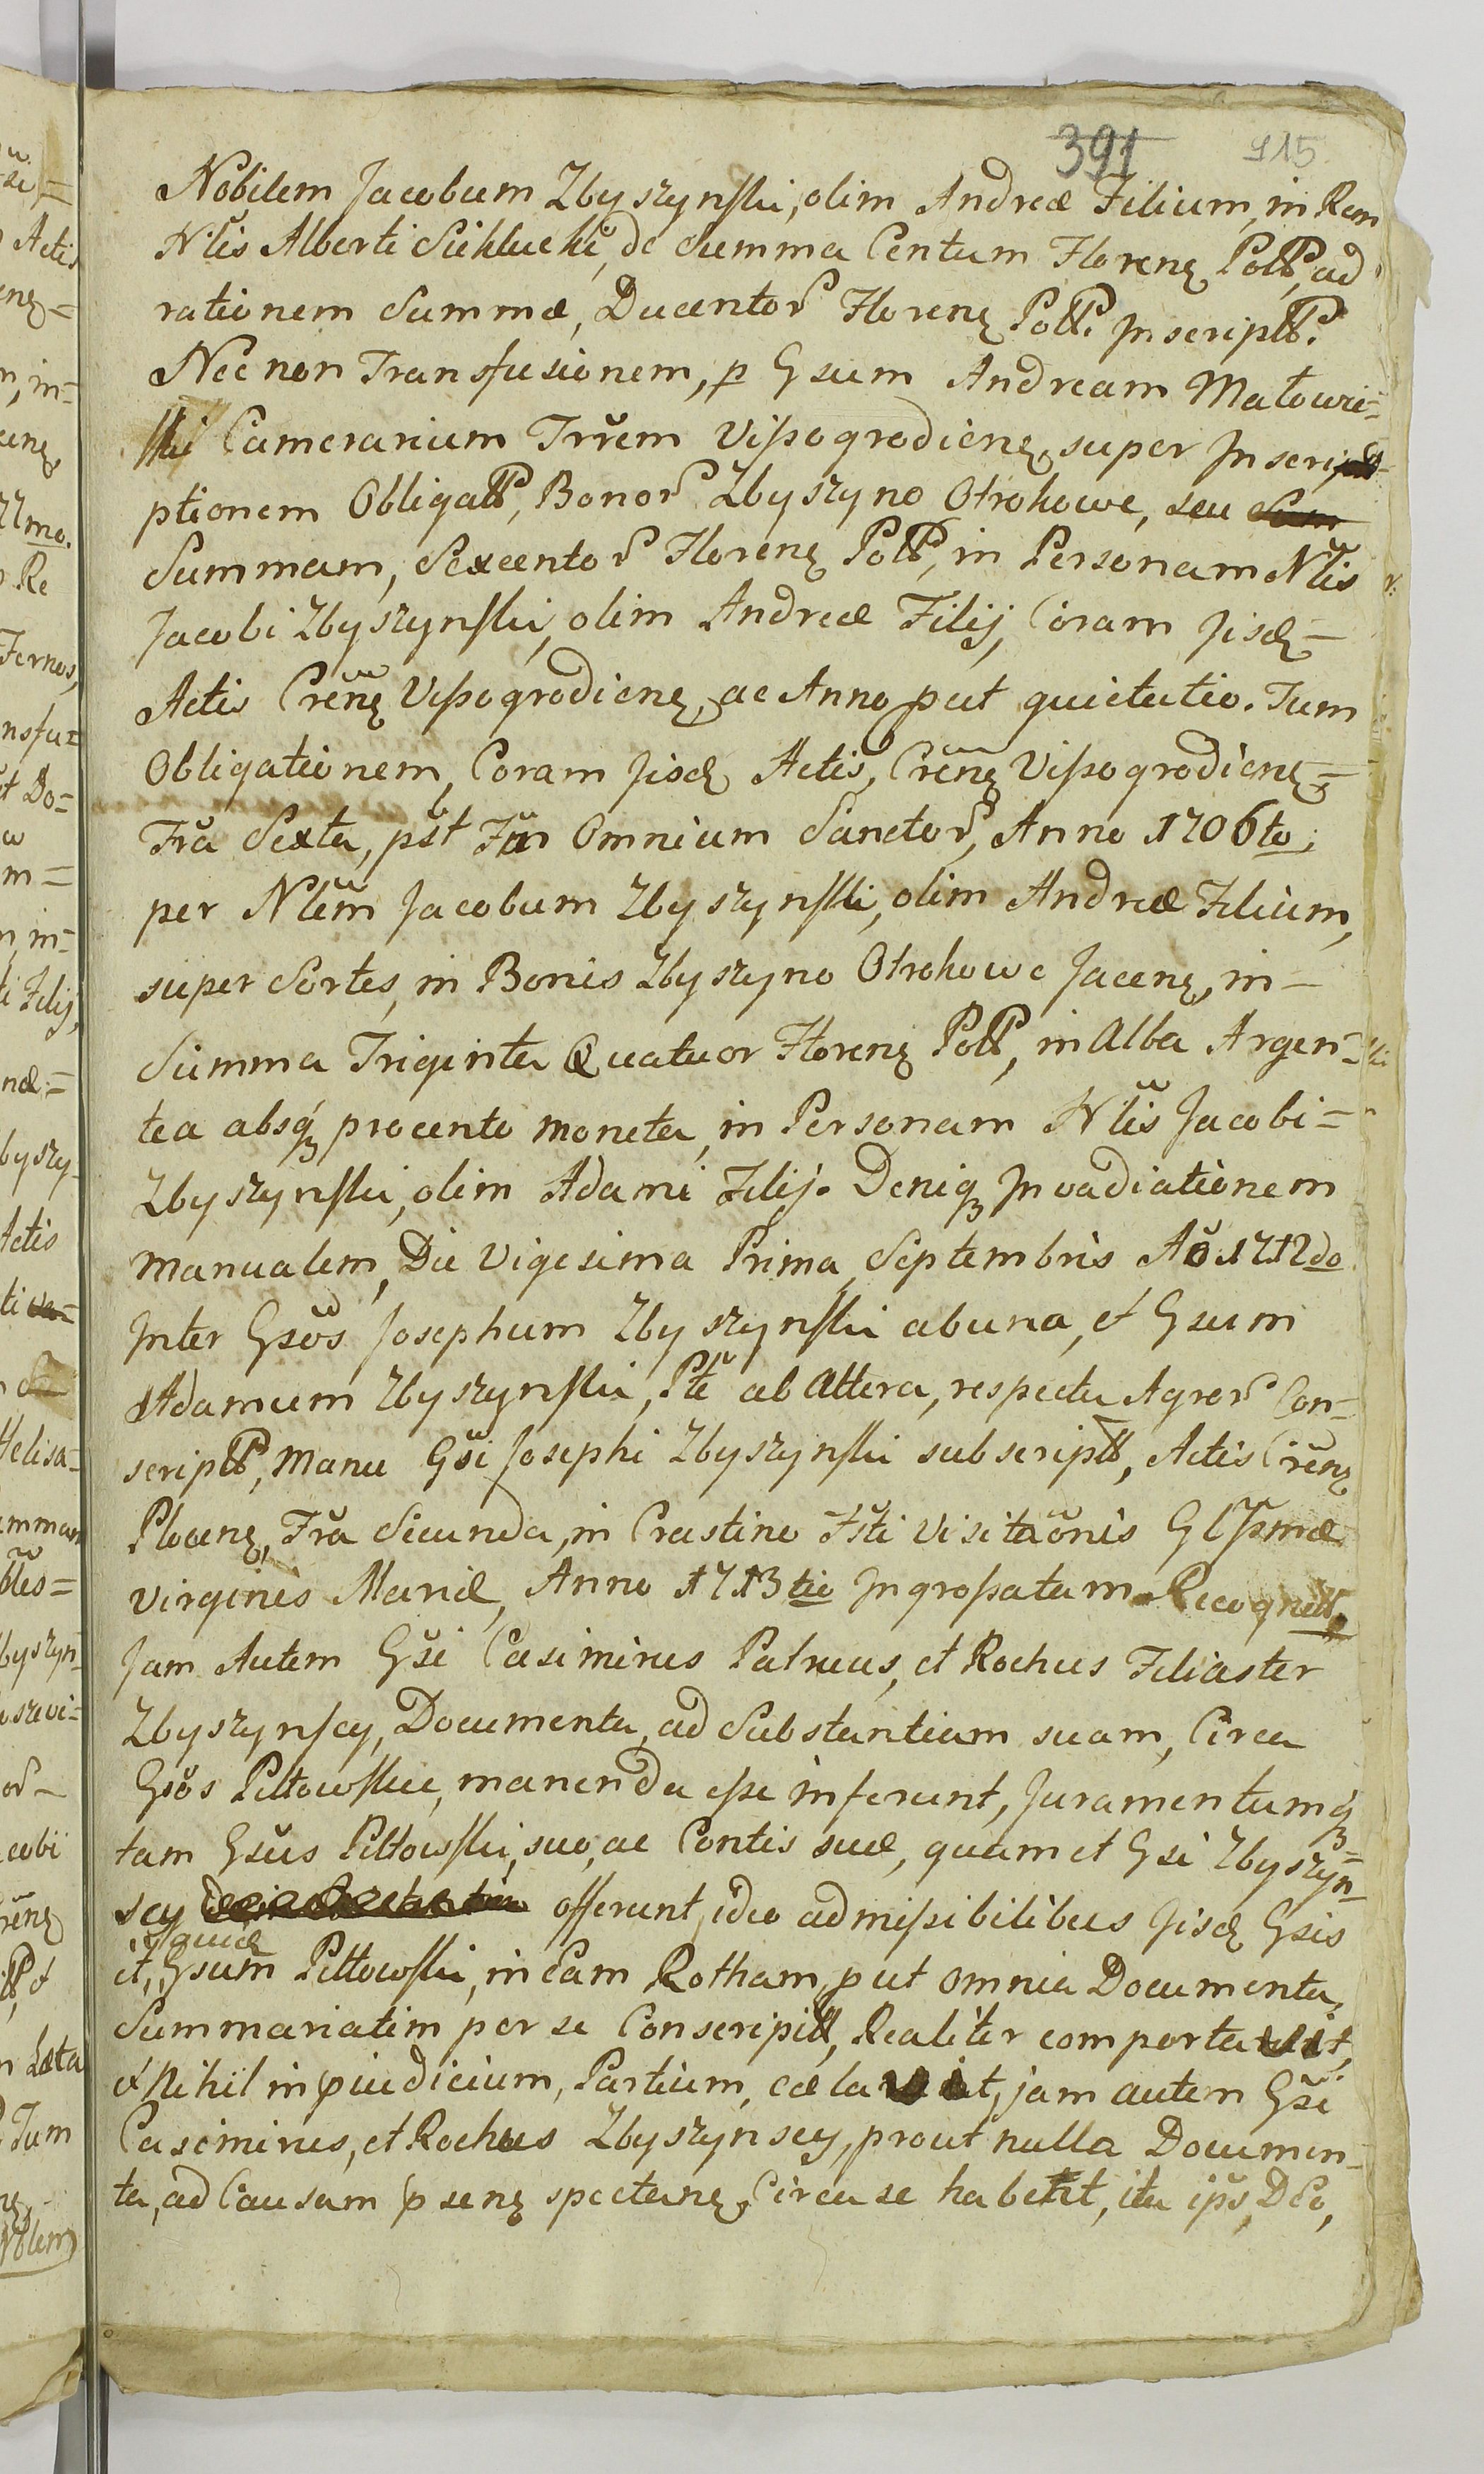 391 915
Nobilem Jacobum Zbyszynski, olim Andreæ Filium, in Rem
Nlis Alberti Sieklucki, de Summa Centum Florenę Poll, ad
rationem Summæ, Ducentor Florenę Poll. Inscriptt.
Nec non Transfusionem, p Gsum Andream Małowie=
ski Camerarium Trrem Vissogrodienę, super Inscri
ptionem Obligatt, Bonor Zbyszyno Otrokowe, seu Sum
Summam, Sexcentor Florenę Poll, in Personam Nlis
Jacobi Zbyszynski, olim Andreæ Filij, Coram Jisdę=
Actis Crenę Vissogrodienę, ac Anno, put quietatio. Tum
Obligationem, Coram Jisdę Actis, Crenę Vissogrodienę=
Fra Sexta, pst Ftm Omnium Sanctor, Anno 1706to,
per Nlem Jacobum Zbyszynski, olim Andreæ Filium,
super Sortes, in Bonis Zbyszyno Otrokowe Jacenę, in=
Summa Triginta Quatuor Florenę Poll, in Alba Argen=
tea absqꝫ procento moneta, in Personam Nlis Jacobi=
Zbyszynski, olim Adami Filij. Deniqꝫ Invadiationem
manualem, Die Vigesima Prima, Septembris Ao 1712do
Inter Gsos Josephum Zbyszynski ab una, et Gsum
Adamum Zbyszynski, Pte ab Altera, respectu Agror Con=
scriptt, Manu Gsi Josephi Zbyszynski subscriptt, Actis Crenę
Plocenę, Fra Secunda, in Crastino Fsti Visitaonis Glssmæ
Virginis Mariæ, Anno 1713tio Ingrossatam Recognitt.
Jam Autem Gsi Casimirus Patruus, et Rochus Filiaster
Zbyszynscy, Documenta, ad Substantiam suam, Circa
Gsos Pełtowskie, manenda esse inferunt, Juramentumqꝫ
tam Gsus Pełtowski, suo, ac Contis suæ, quam et Gsi Zbyszyn=
scy offerunt, ideo admissibilibus Jisdę Gsis
quid
et, Gsum Pełtowski, in Eam Rotham, put omnia Documenta,
Summariatim per se Conscriptt, Realiter comportavit,
et Nihil in pjudicium, Partium, cælavit, jam autem Gsi
Casimirus, et Rochus Zbyszynscy, prout nulla Documen=
ta, ad Causam psenę spectanę, Circa se habent, ita ips, DEo,